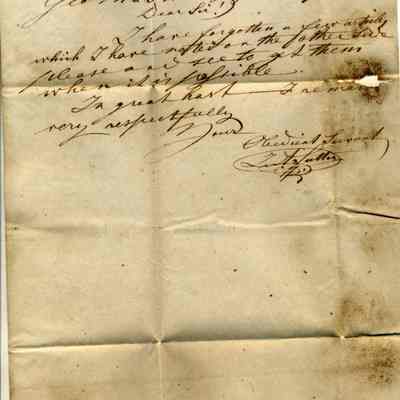 Dear Sir!
I have forgotten a few articles
which I have noted on the father side
please and see to get them
when it is possible.
In great hast I remain
very respectfully
Your
Obedient Servant